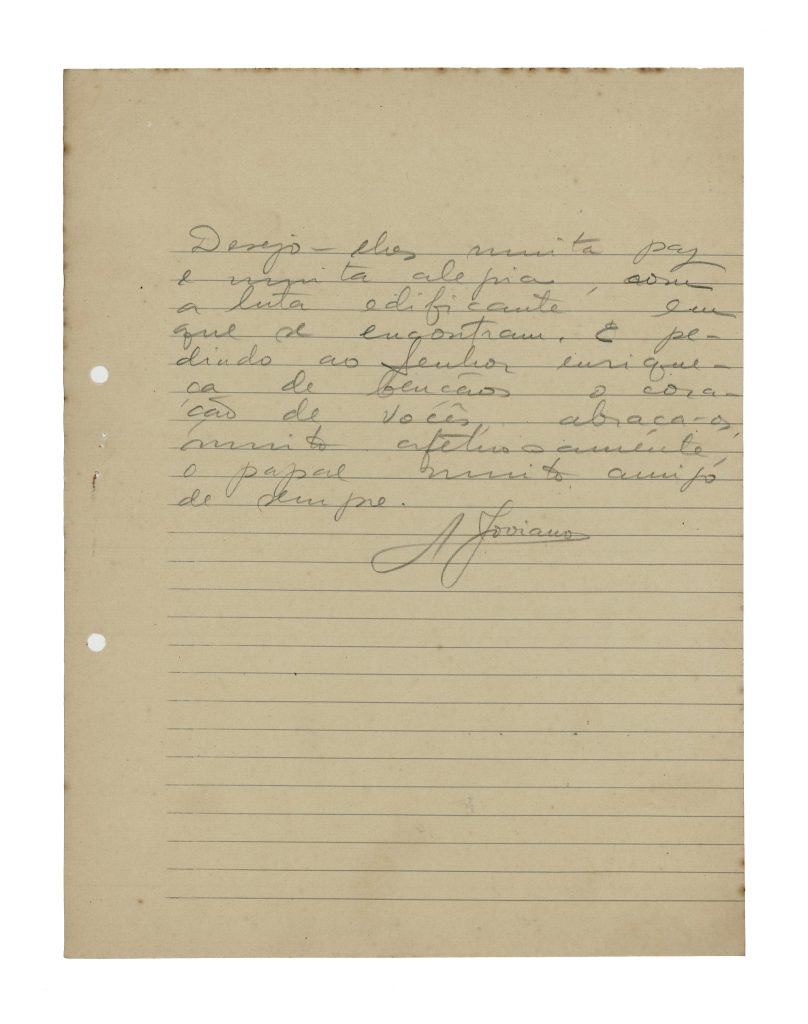 Desejo-lhes muita paz
e muita alegria, com
a luta edificante em
que se encontram. E pe-
dindo ao Senhor enrique-
ça de bençãos o cora-
ção de vocês, abraça-os,
muito afetuosamente,
o papae muito amigo
de sempre.
A Joviano